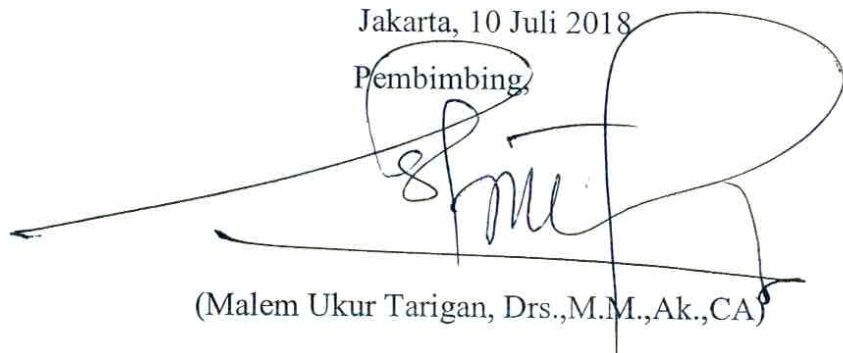 Jakarta, 10 Juli 2018
Pembimbing,
(Malem Ukur Tarigan, Drs.,M.M.,Ak.,CA)